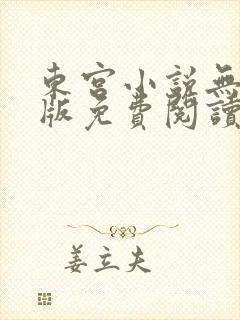 東宮小說無
版免費閱讀
姜立夫